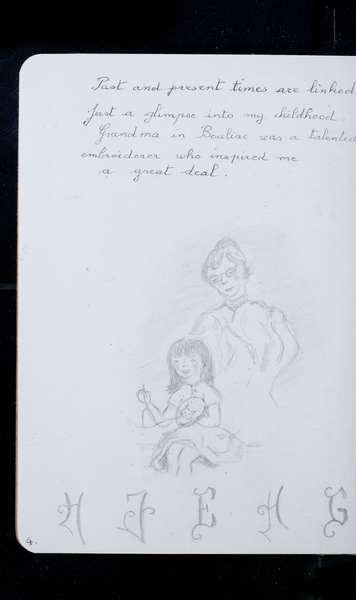 Past and present times are linked
Just a glimpse into my childhood.
Grandma in Bouliac was a talented
embroiderer who inspired me
a great deal.
H J E H G
4.